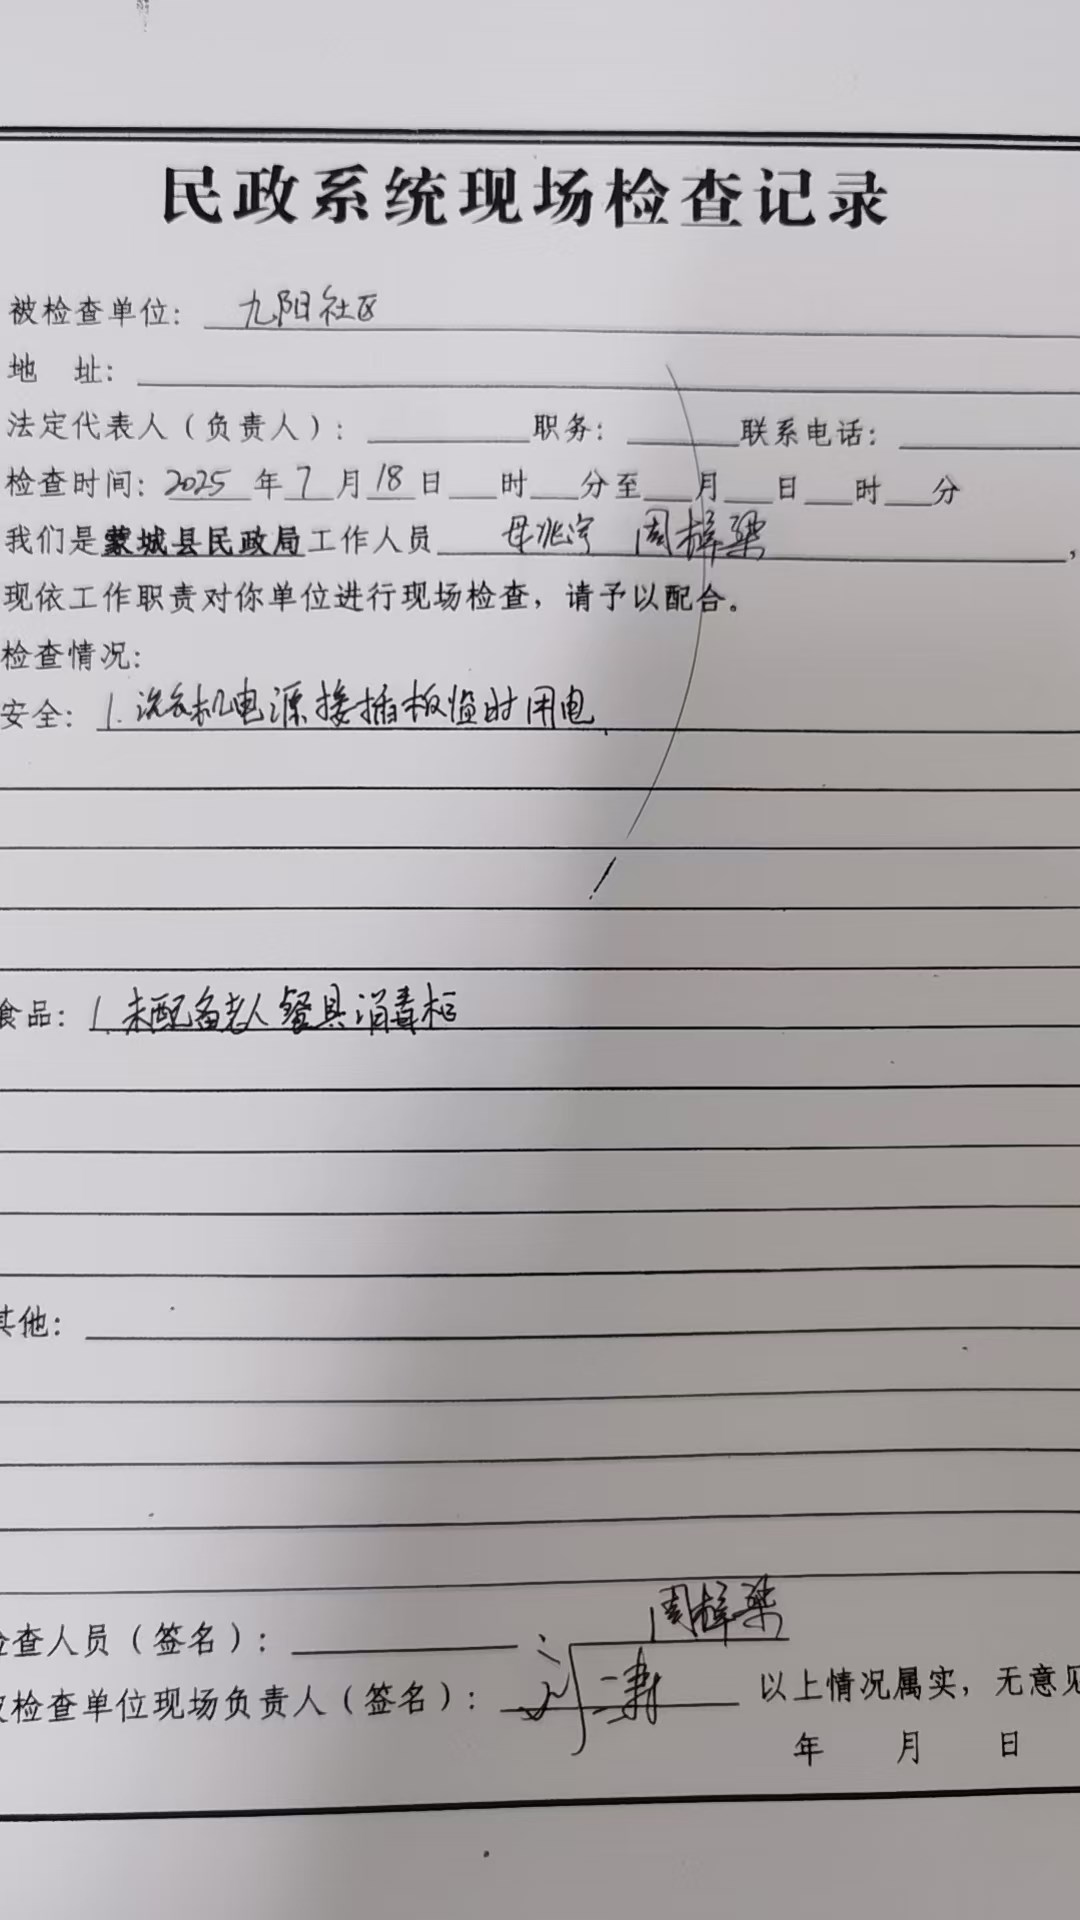 民政系统现场检查记录
被检查单位：九阳社区
地 址：
法定代表人（负责人）：职务：联系电话：
检查时间：2025年7月18日 时 分至 月 日 时 分
我们是蒙城县民政局工作人员 母兆宇 周梓梁，
现依工作职责对你单位进行现场检查，请予以配合。
检查情况：
安全：1.洗衣机电源接插板临时用电.
食品：1.未配备老人餐具消毒柜
其他：
检查人员（签名）：周梓梁
被检查单位现场负责人（签名）：以上情况属实，无意见
年 月 日